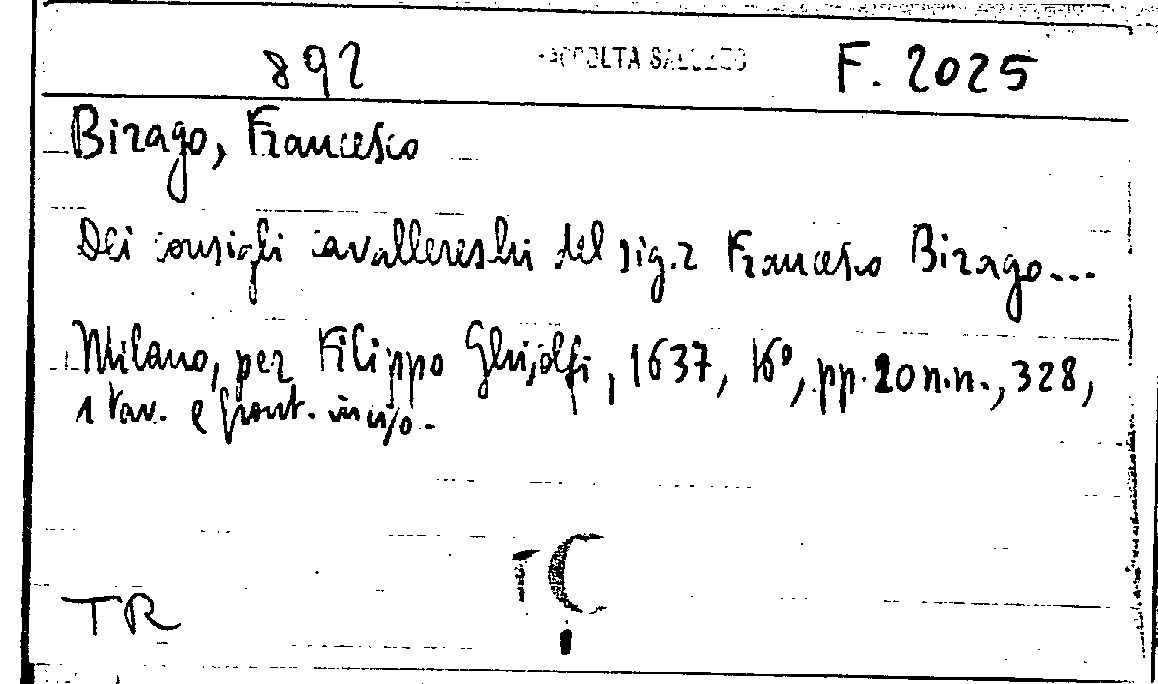 892 F. 2025
Birago, Francesco
Dei consigli cavallereschi del sig.r Francesco Birago...
Milano, per Filippo Ghisolfi, 1637, 16°, pp. 20 n.n., 328,
1 tav. e front. inciso.
TR